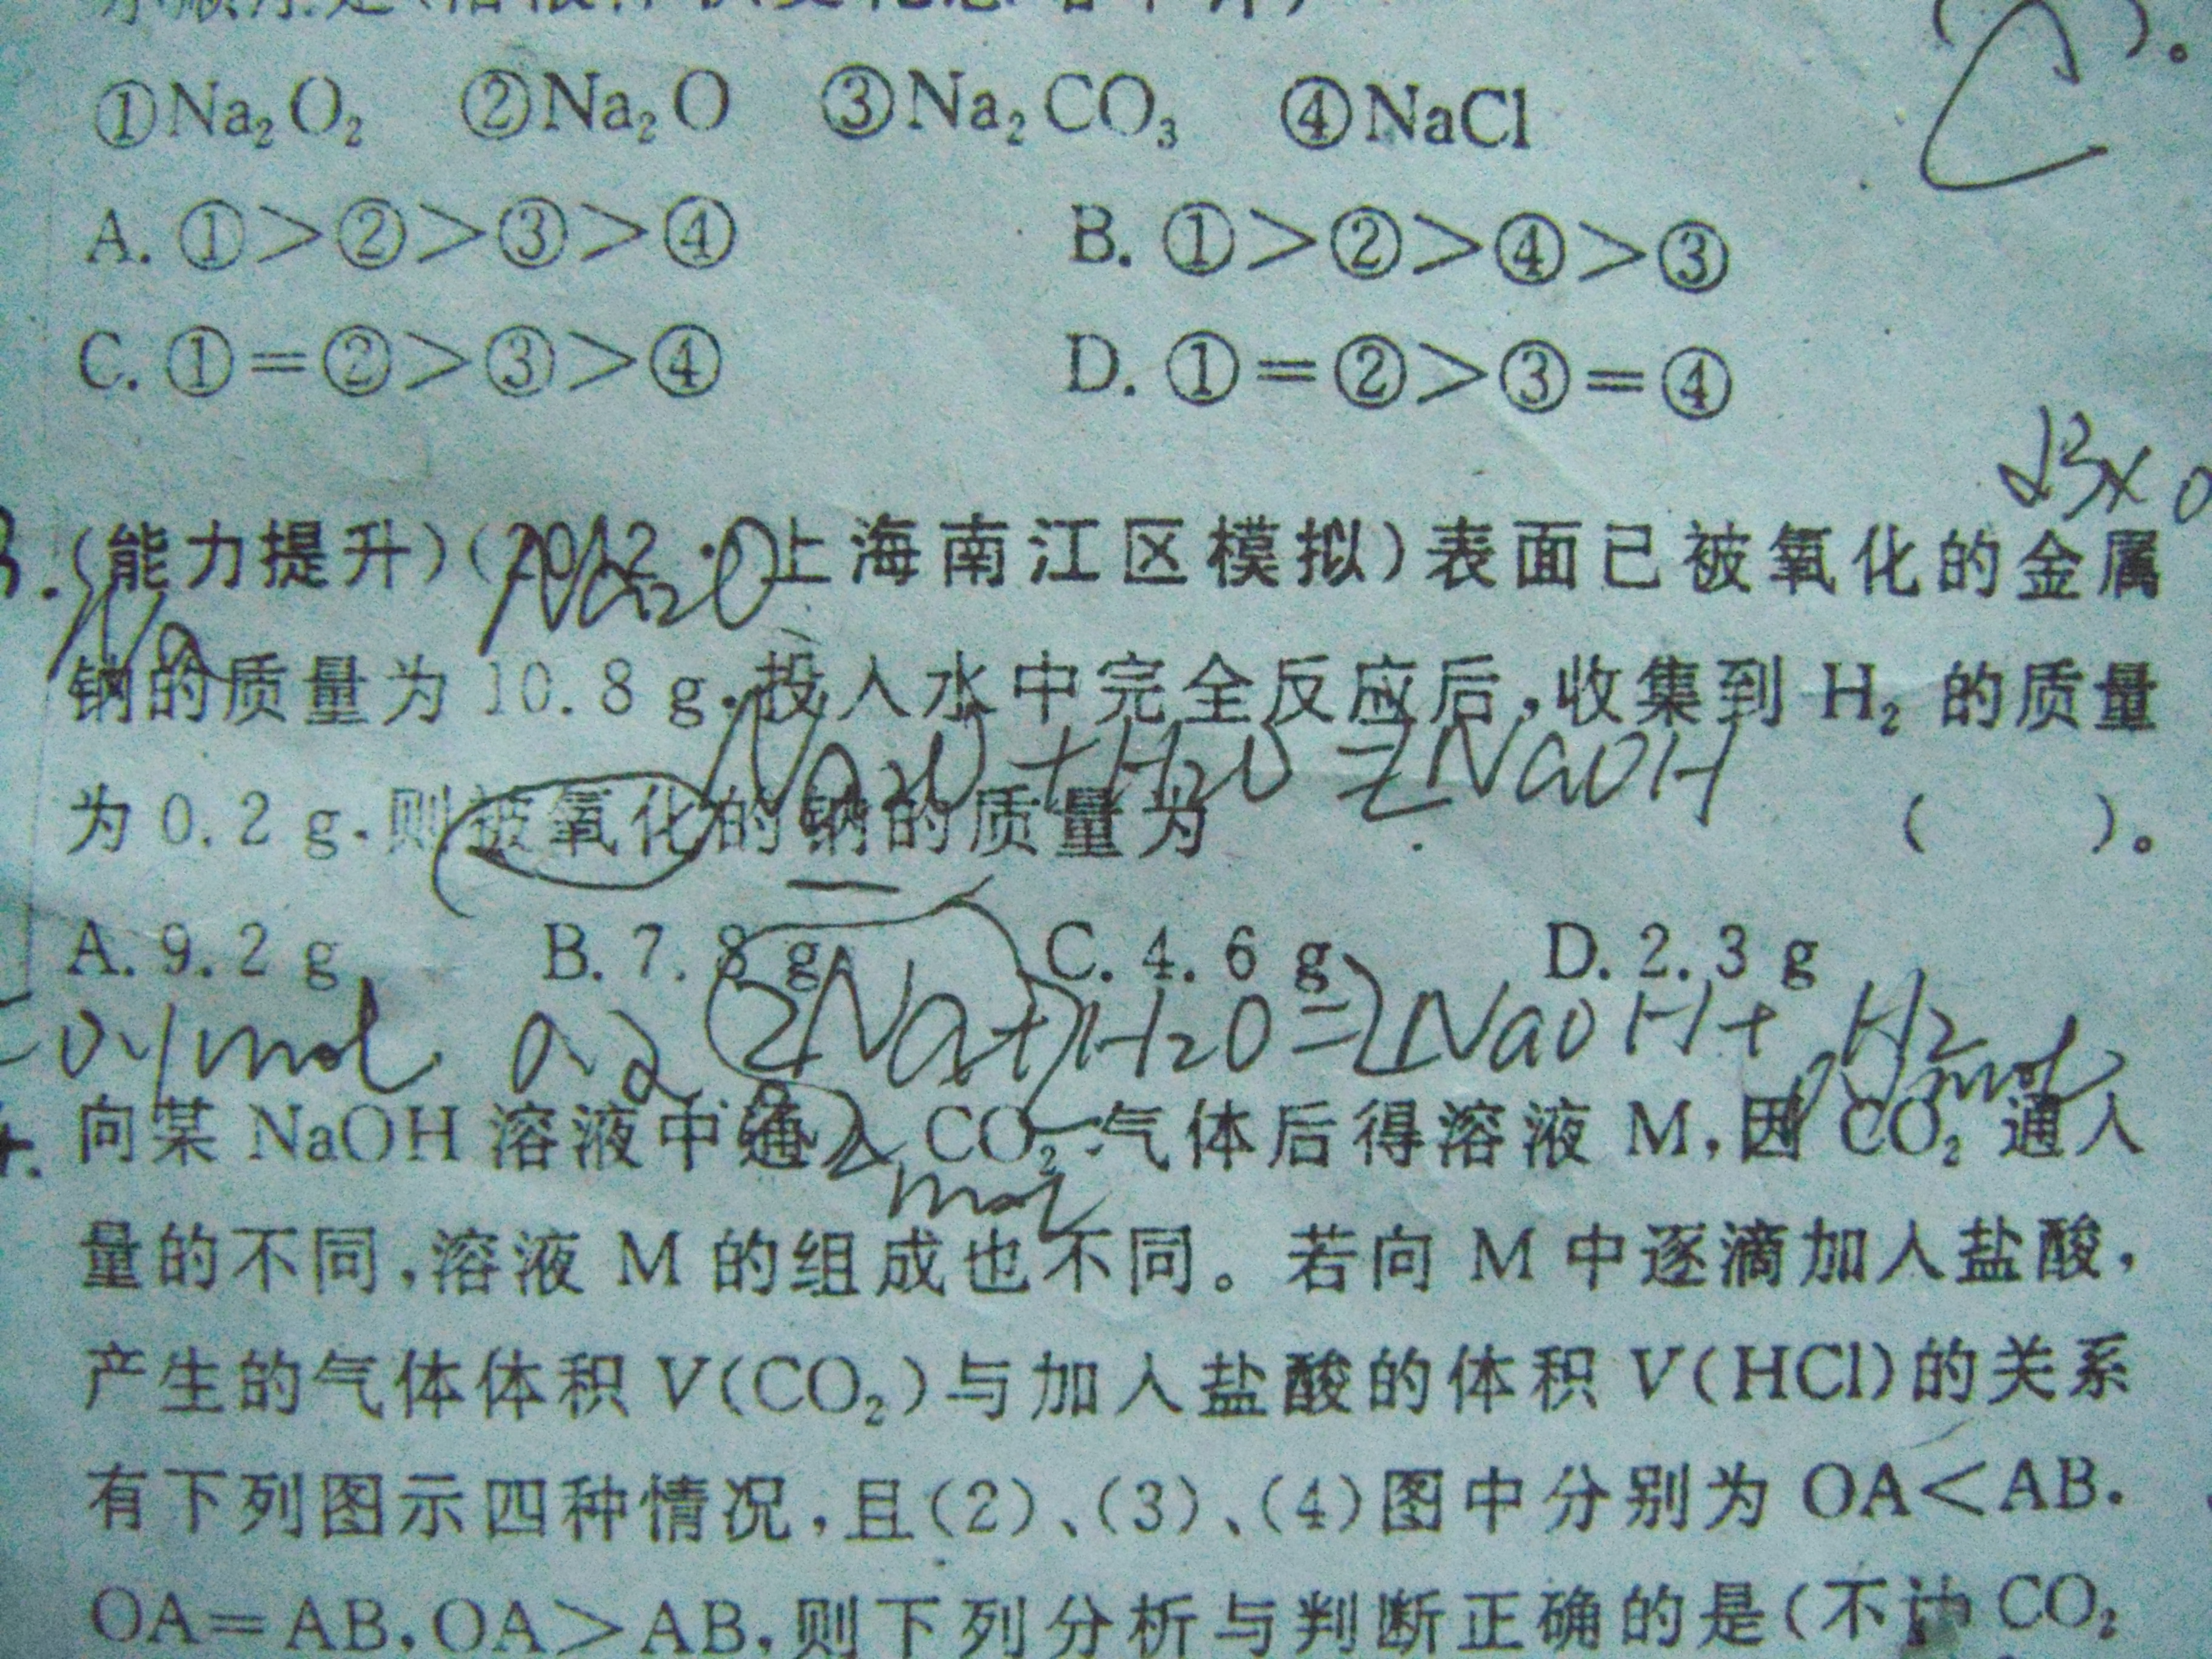 ①Na₂O₂ ②Na₂O ③Na₂CO₃ ④NaCl
C
)。
A. ①>②>③>④ B. ①>②>④>③
C. ①=②>③>④ D. ①=②>③=④
(能力提升)(2012·上海南江区模拟)表面已被氧化的金属
Na Na₂O
钠的质量为 10.8 g,投入水中完全反应后,收集到 H₂ 的质量
Na₂O+H₂O=2NaOH
为 0.2 g,则被氧化的钠的质量为 ( )。
A. 9.2 g B. 7.8 g C. 4.6 g D. 2.3 g
2Na+2H₂O=2NaOH+H₂
向某 NaOH 溶液中通入 CO₂ 气体后得溶液 M,因 CO₂ 通入
mol
量的不同,溶液 M 的组成也不同。若向 M 中逐滴加入盐酸,
产生的气体体积 V(CO₂)与加入盐酸的体积 V(HCl)的关系
有下列图示四种情况,且(2)、(3)、(4)图中分别为 OA<AB,
OA=AB,OA>AB,则下列分析与判断正确的是(不计 CO₂